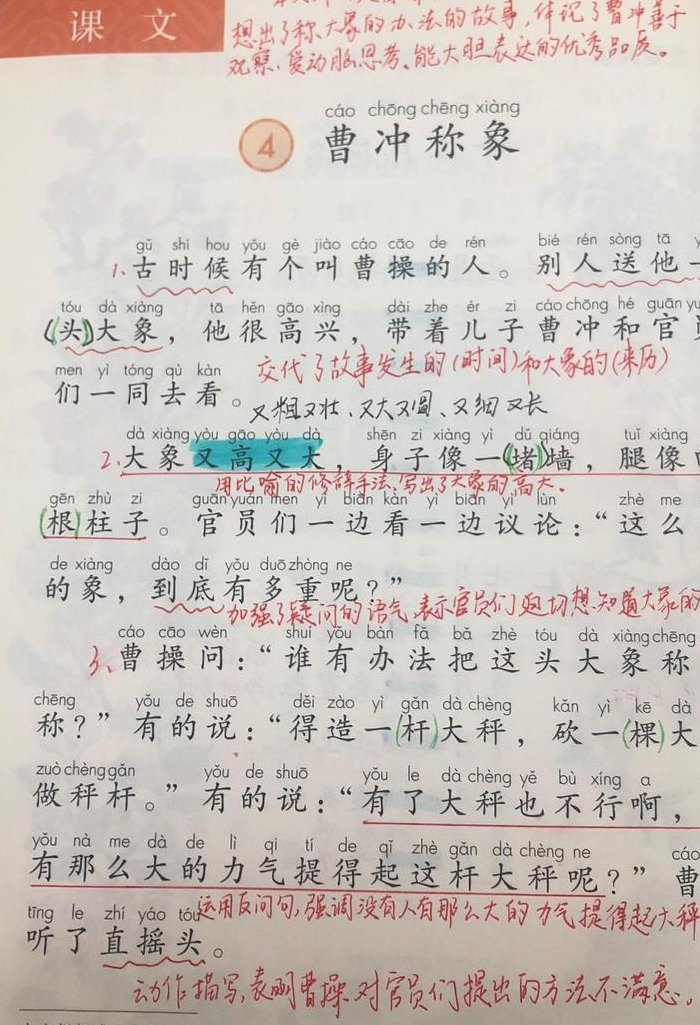 课文
想出了称大象的办法的故事，体现了曹冲善于
观察、爱动脑思考、能大胆表达的优秀品质。
cáo chōng chēng xiàng
4 曹冲称象
gǔ shí hou yǒu gè jiào cáo cāo de rén bié rén sòng tā
1.古时候有个叫曹操的人。别人送他一
tóu dà xiàng tā hěn gāo xìng dài zhe ér zi cáo chōng hé guān yu
(头)大象，他很高兴，带着儿子曹冲和官员
men yì tóng qù kàn
们一同去看。
交代了故事发生的(时间)和大象的(来历)
又粗又壮、又大又圆、又细又长
dà xiàng yòu gāo yòu dà shēn zi xiàng yì dǔ qiáng tuǐ xiàng
2.大象又高又大，身子像一(堵)墙，腿像
用比喻的修辞手法，写出了大象的高大。
gēn zhù zi guān yuán men yì biān kàn yì biān yì lùn zhè me
(根)柱子。官员们一边看一边议论：“这么
de xiàng dào dǐ yǒu duō zhòng ne
的象，到底有多重呢？”
加强了疑问的语气，表示官员们迫切想知道大象的
cáo cāo wèn shuí yǒu bàn fǎ bǎ zhè tóu dà xiàng chēng
3、曹操问：“谁有办法把这头大象称
chēng yǒu de shuō děi zào yì gǎn dà chèng kǎn yì kē dà
称？”有的说：“得造一(杆)大秤，砍一(棵)大
zuò chèng gǎn yǒu de shuō yǒu le dà chèng yě bù xíng a
做秤杆。”有的说：“有了大秤也不行啊，
yǒu nà me dà de lì qi tí de qǐ zhè gǎn dà chèng ne cáo
有那么大的力气提得起这杆大秤呢？”曹
运用反问句，强调没有人有那么大的力气提得起大秤
tīng le zhí yáo tóu
听了直摇头。
动作描写，表明曹操对官员们提出的方法不满意。